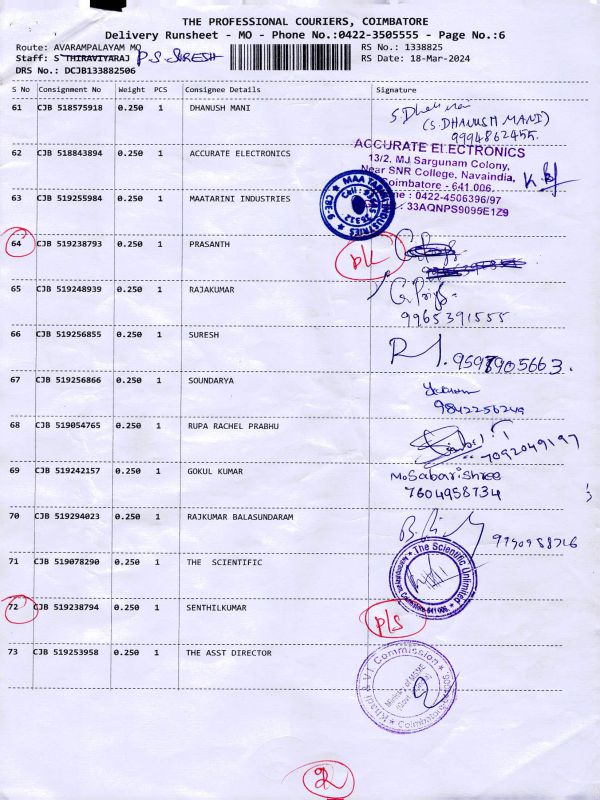 THE PROFESSIONAL COURIERS, COIMBATORE
Delivery Runsheet - MO - Phone No.:0422-3505555 - Page No.:6
Route: AVARAMPALAYAM MO
RS No.: 1338825
Staff: S THIRAVIYARAJ P.S. SURESH
RS Date: 18-Mar-2024
DRS No.: DCJB133882506
S No Consignment No Weight PCS Consignee Details Signature
61 CJB 518575918 0.250 1 DHANUSH MANI
(S DHANUSH MANI)
9994862455.
62 CJB 518843894 0.250 1 ACCURATE ELECTRONICS
ACCURATE ELECTRONICS
13/2, MJ Sargunam Colony,
Near SNR College, Navaindia,
Coimbatore - 641 006.
Phone : 0422-4506396/97
33AQNPS9095E1Z9
63 CJB 519255984 0.250 1 MAATARINI INDUSTRIES
64 CJB 519238793 0.250 1 PRASANTH
65 CJB 519248939 0.250 1 RAJAKUMAR
9965391555
66 CJB 519256855 0.250 1 SURESH
9597905663.
67 CJB 519256866 0.250 1 SOUNDARYA
68 CJB 519054765 0.250 1 RUPA RACHEL PRABHU
7092049197
69 CJB 519242157 0.250 1 GOKUL KUMAR
M.Sabarishree
7604958734
70 CJB 519294023 0.250 1 RAJKUMAR BALASUNDARAM
71 CJB 519078290 0.250 1 THE SCIENTIFIC
The Scientific Unlimited
72 CJB 519238794 0.250 1 SENTHILKUMAR
P/S
73 CJB 519253958 0.250 1 THE ASST DIRECTOR
Khadi & V.I Commission
Ministry of MSME
2